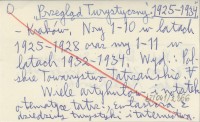 "Przegląd Turystyczny", 1925-1934,
- Kraków, Nry 1-10 w latach
1925-1928 oraz nry 1-11 w
latach 1932-1934. Wyd.: Pol-
skie Towarzystwo Tatrzańskie
Wiele artykułów i notatek
o tematyce tatrz.,
dziedziny turystyki i taternictwa.